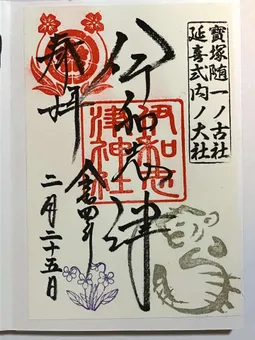 寳塚随一ノ古社
延喜式内ノ大社
奉拝
伊和志津
伊和志津神社
令和四年
二月二十五日